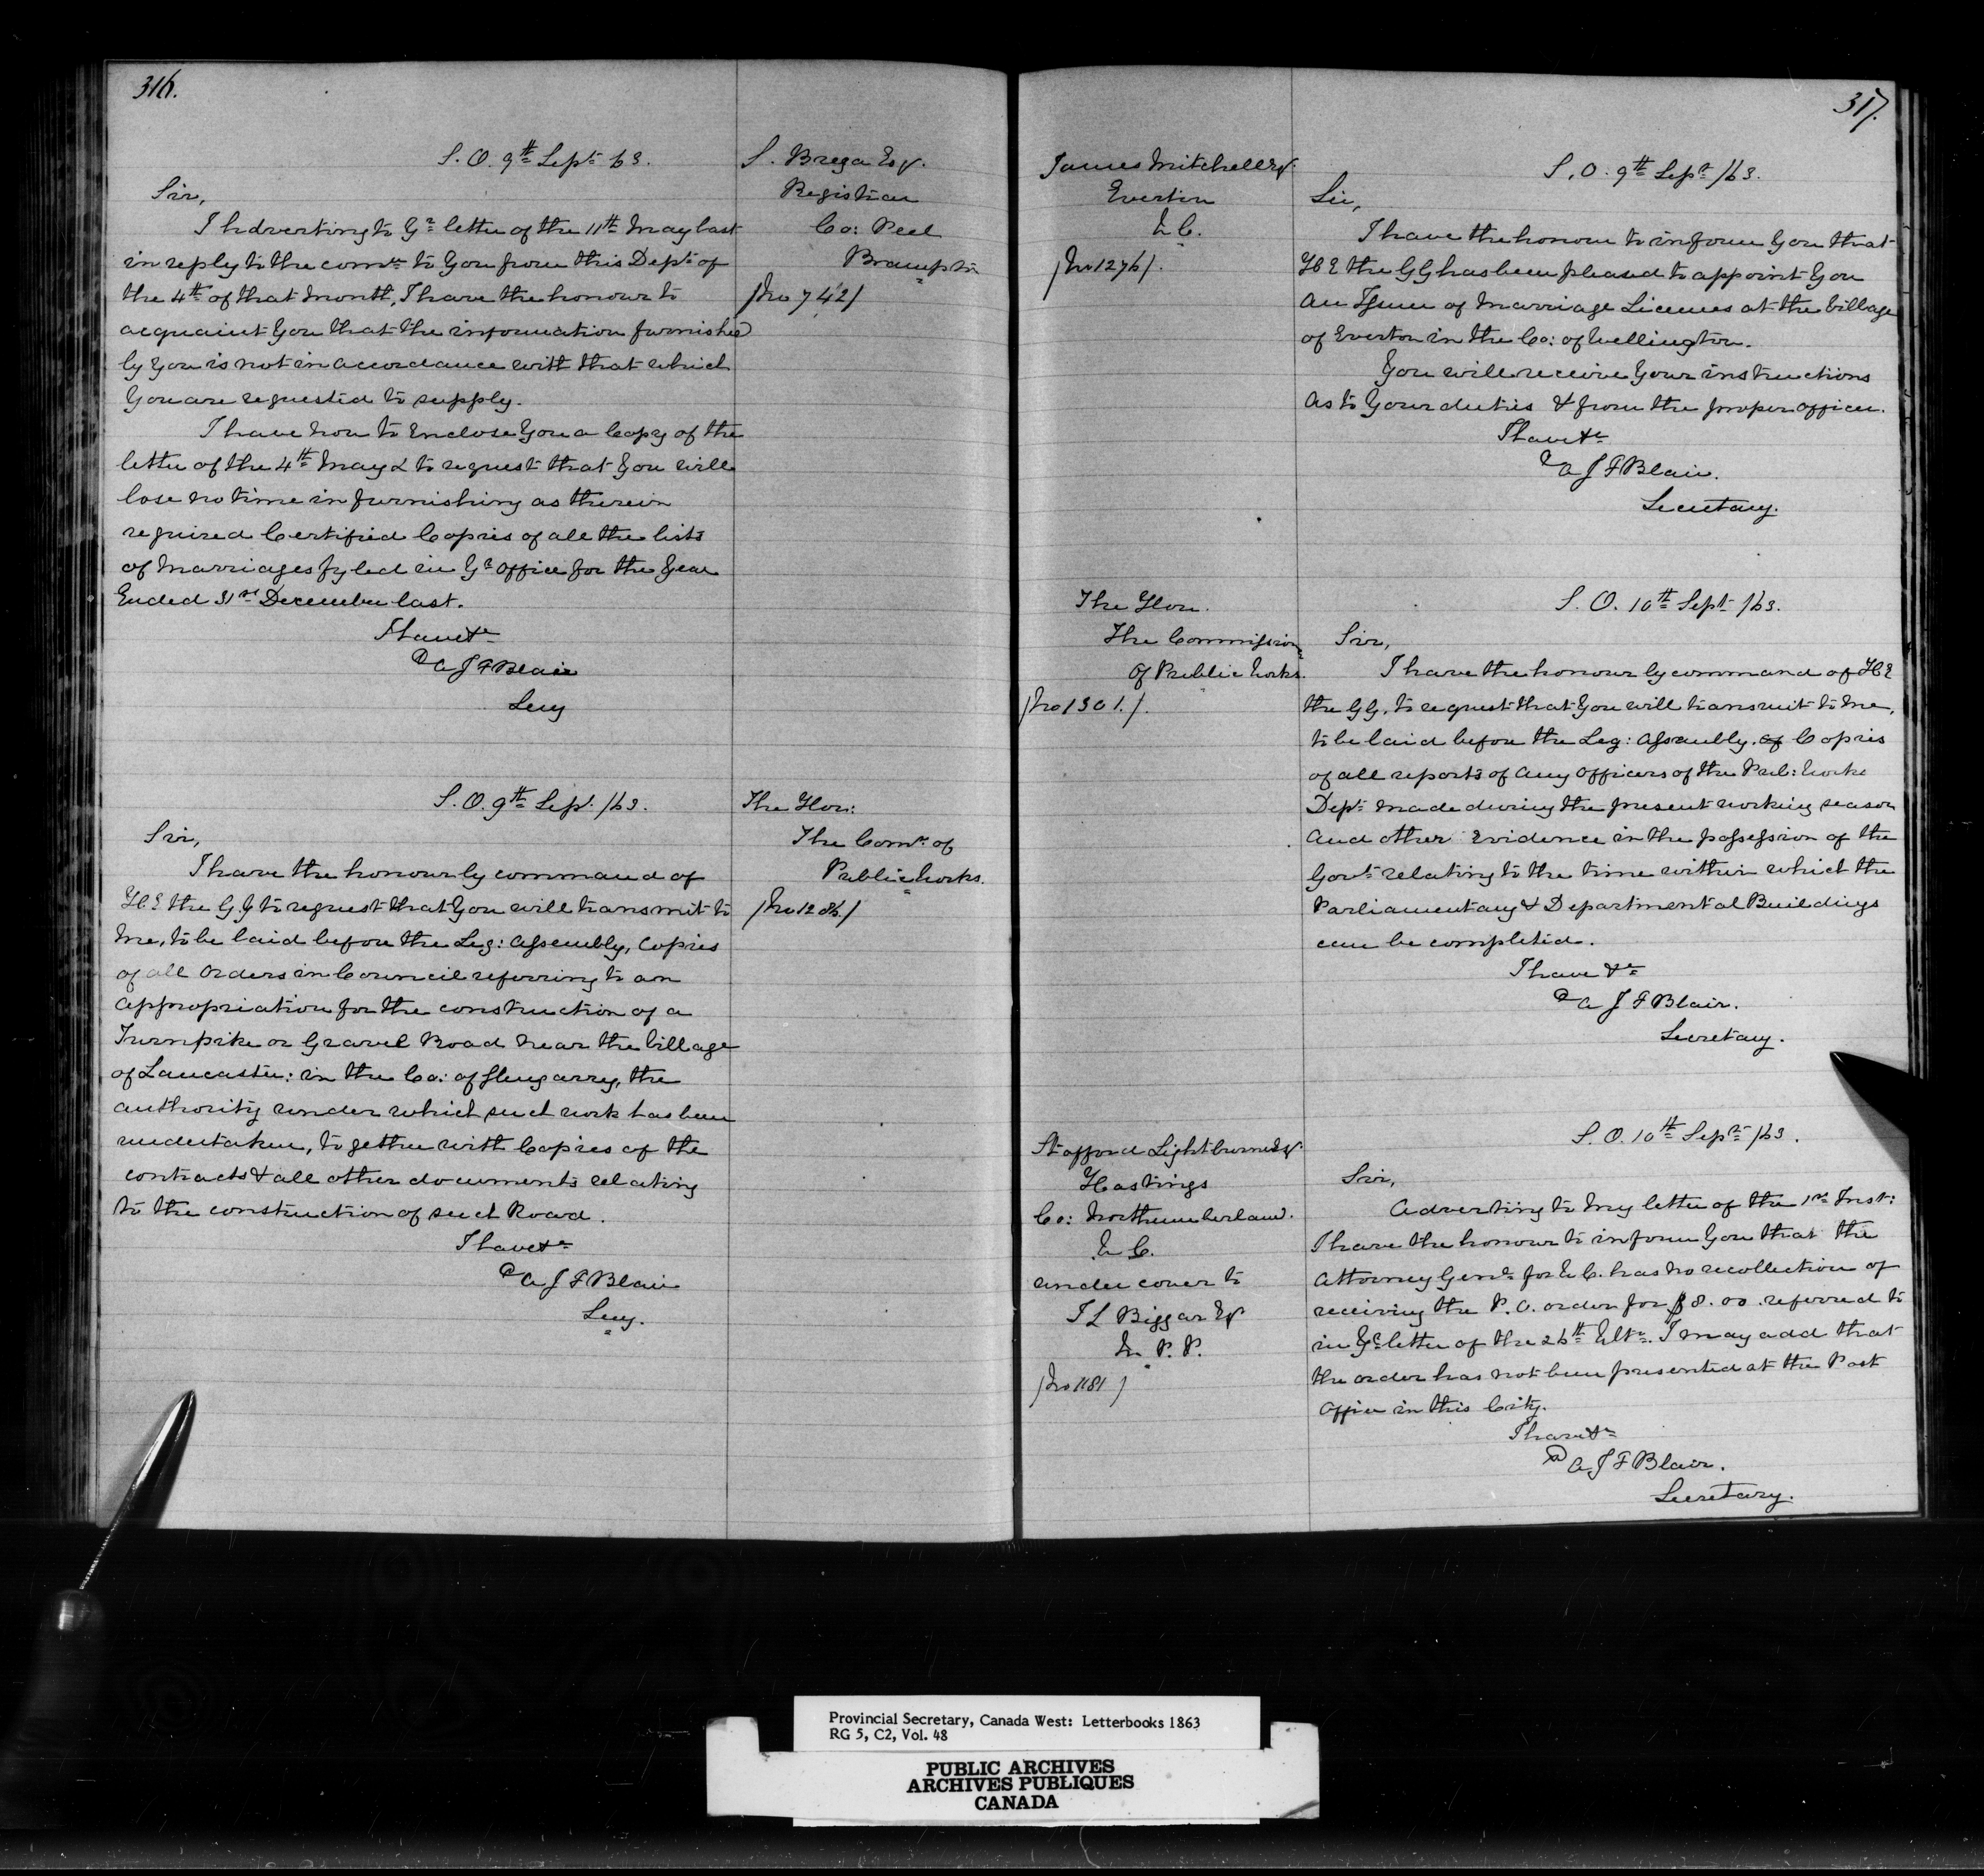 316.
S. O. 9th Sept 63.
Sir,
I Adverting to Yr letter of the 11th May last
in reply to the comn to You from this Dept of
the 4th of that Month, I have the honour to
acquaint You that the information furnished
by You is not in accordance with that which
You are requested to supply.
I have now to Enclose You a Copy of the
letter of the 4th May & to request that You will
lose no time in furnishing as therein
required Certified Copies of all the lists
of Marriages fyled in Yr Office for the Year
Ended 31st December last.
I have &c
A J F Blair
Secy
S. Brega Esq.
Registrar
Co: Peel
Brampton
/No 742/
S. O. 9th Sept. /63.
Sir,
I have the honour by command of
H E the G G to request that You will transmit to
me, to be laid before the Leg: Assembly, Copies
of all Orders in Council referring to an
appropriation for the construction of a
Turnpike or Gravel Road near the Village
of Lancaster: in the Co: of Glengarry, the
authority under which such work has been
undertaken, together with Copies of the
contracts & all other documents relating
to the construction of such Road.
I have &c
A J F Blair
Secy.
The Hon:
The Comr of
Public Works.
/No 1286/
317.
James Mitchell Esq.
Everton
U C.
/No 1276/.
S. O. 9th Sept /63.
Sir,
I have the honour to inform You that
H E the G G has been pleased to appoint You
an Issuer of Marriage Licenses at the Village
of Everton in the Co: of Wellington.
You will receive Your instructions
as to Your duties & from the proper officer.
I have &c
A J F Blair.
Secretary.
The Hon.
The Commissionr
of Public Works.
/No 1301./.
S. O. 10th Sept /63.
Sir,
I have the honour by command of H E
the G G. to request that You will transmit to me,
to be laid before the Leg: Assembly, of Copies
of all reports of any Officers of the Pub: Works
Dept made during the present working season
and other Evidence in the possession of the
Govt relating to the time within which the
Parliamentary & Departmental Buildings
can be completed.
I have &c
A J F Blair.
Secretary.
Stafford Lightburne Esq.
Hastings
Co: Northumberland.
U C.
under cover to
J L Biggar Esq
M. P. P.
/No 1181/
S. O. 10th Sept /63.
Sir,
Adverting to my letter of the 1st Inst:
I have the honour to inform You that the
Attorney Genl for U C. has no recollection of
receiving the P. O. order for $8.00. referred to
in Yr letter of the 26th Ulto. I may add that
the order has not been presented at the Post
Office in this City.
I have &c
A J F Blair.
Secretary.
Provincial Secretary, Canada West: Letterbooks 1863
RG 5, C2, Vol. 48
PUBLIC ARCHIVES
ARCHIVES PUBLIQUES
CANADA